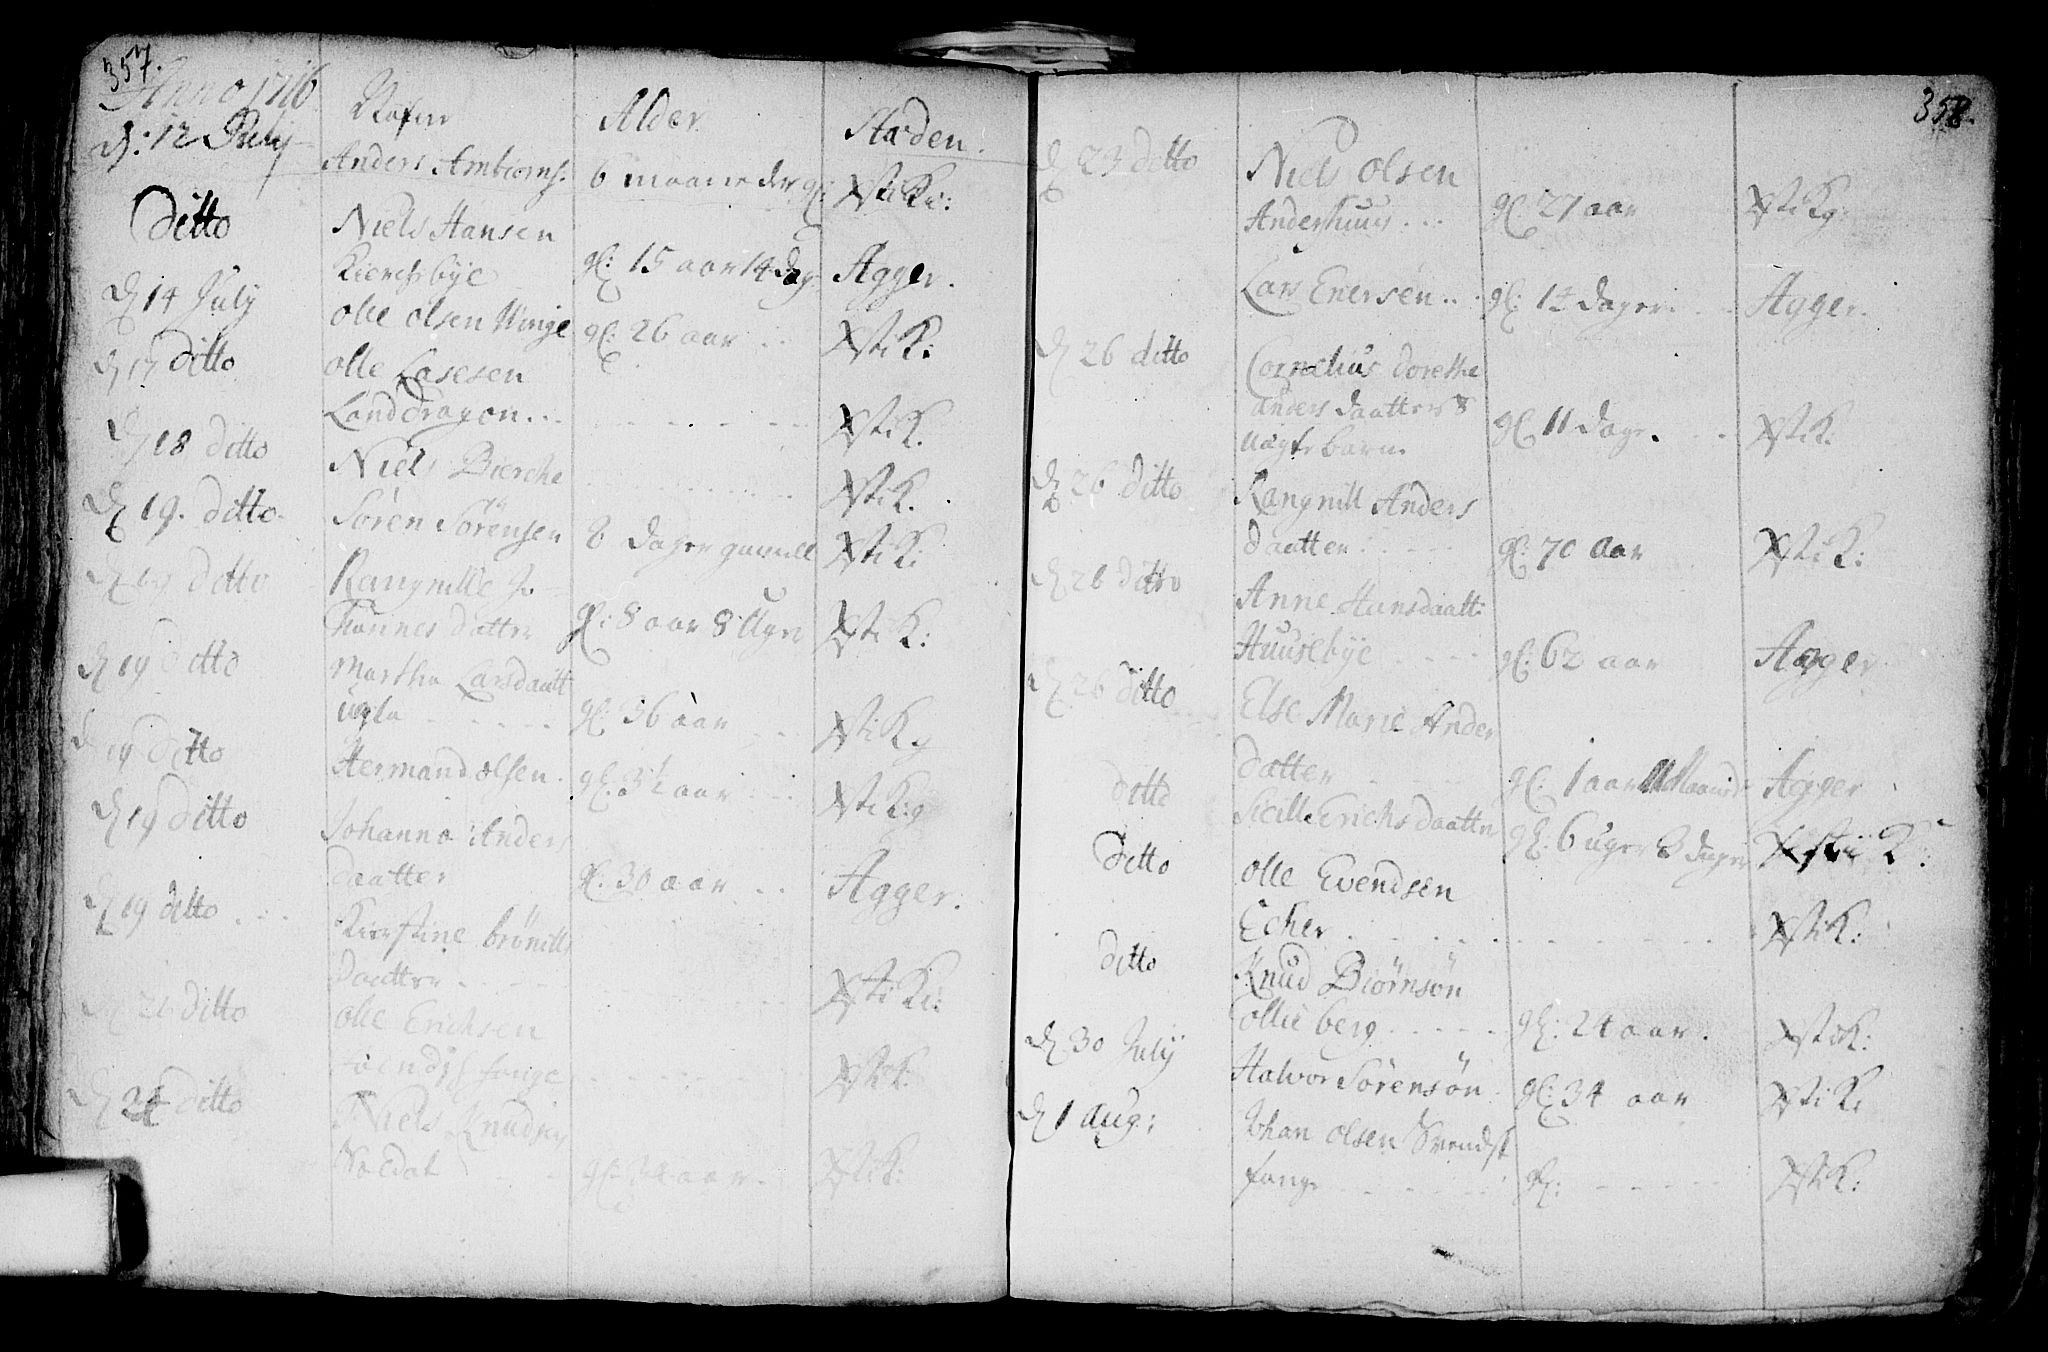 357.
Anno 1716
Nafn Alder Staden.
d: 12 July Anders Ambiorns: 6 maaneder gl: Xsti K:
Ditto Niels Hansen
Kierchebÿe gl: 15 aar 14 dag Agger.
d 14 July Olle Olsen Winge gl: 26 aar .. Xsti K:
d 17 ditto Olle Lasesen
Land Dragon... Xsti K.
d 18 ditto Niels Bierche Xsti K.
d 19. ditto Sören Sörensen 8 dager gammell Xsti K:
d 19 ditto Rangnille Jo-
hannes datter gl: 8 aar 8 Uger Xsti K:
d 19 ditto Martha Larsdaatt
gl: 36 aar Xsti K:
d 19 ditto Hermand olsen. gl. 3½ aar Xsti K:
d 19 ditto Johanna Anders
daatter gl: 30 aar .. Agger.
d 19 ditto Kierstine
daatter Xsti K:
d 21 ditto Olle Erichsen
fange Xsti K:
d 24 ditto Niels Knudsen
Soldat gl: aar. Xsti K:
358.
d 23 ditto Niels Olsen
Andershuus ... gl: 27 aar Xsti K:
Lars Enersen... gl: 14 dager. Agger.
d 26 ditto Cornelius dorethe
anders daatters
uægte barn gl 11 dage. Xsti K:
d 26 ditto Rangnill Anders
daatter gl: 70 aar Xsti K:
d 26 ditto Anne Hansdaatt:
Huusebÿe gl: 62 aar Agger
d 26 ditto Else Marie Ander
datter gl: 1 aar 11 Maaneder Agger
ditto Sicille Erichsdaatter gl: 6 uger 3 dager Xsti K:
ditto Olle Evendsen
Echer Xsti K:
ditto Knud Biörnsön
ollieberg gl: 24 aar. Xsti K:
d 30 July Halvor Sörensön gl: 34 aar Xsti K:
d 1 aug: Johan olsen Svendsk
fange gl: Xsti K: